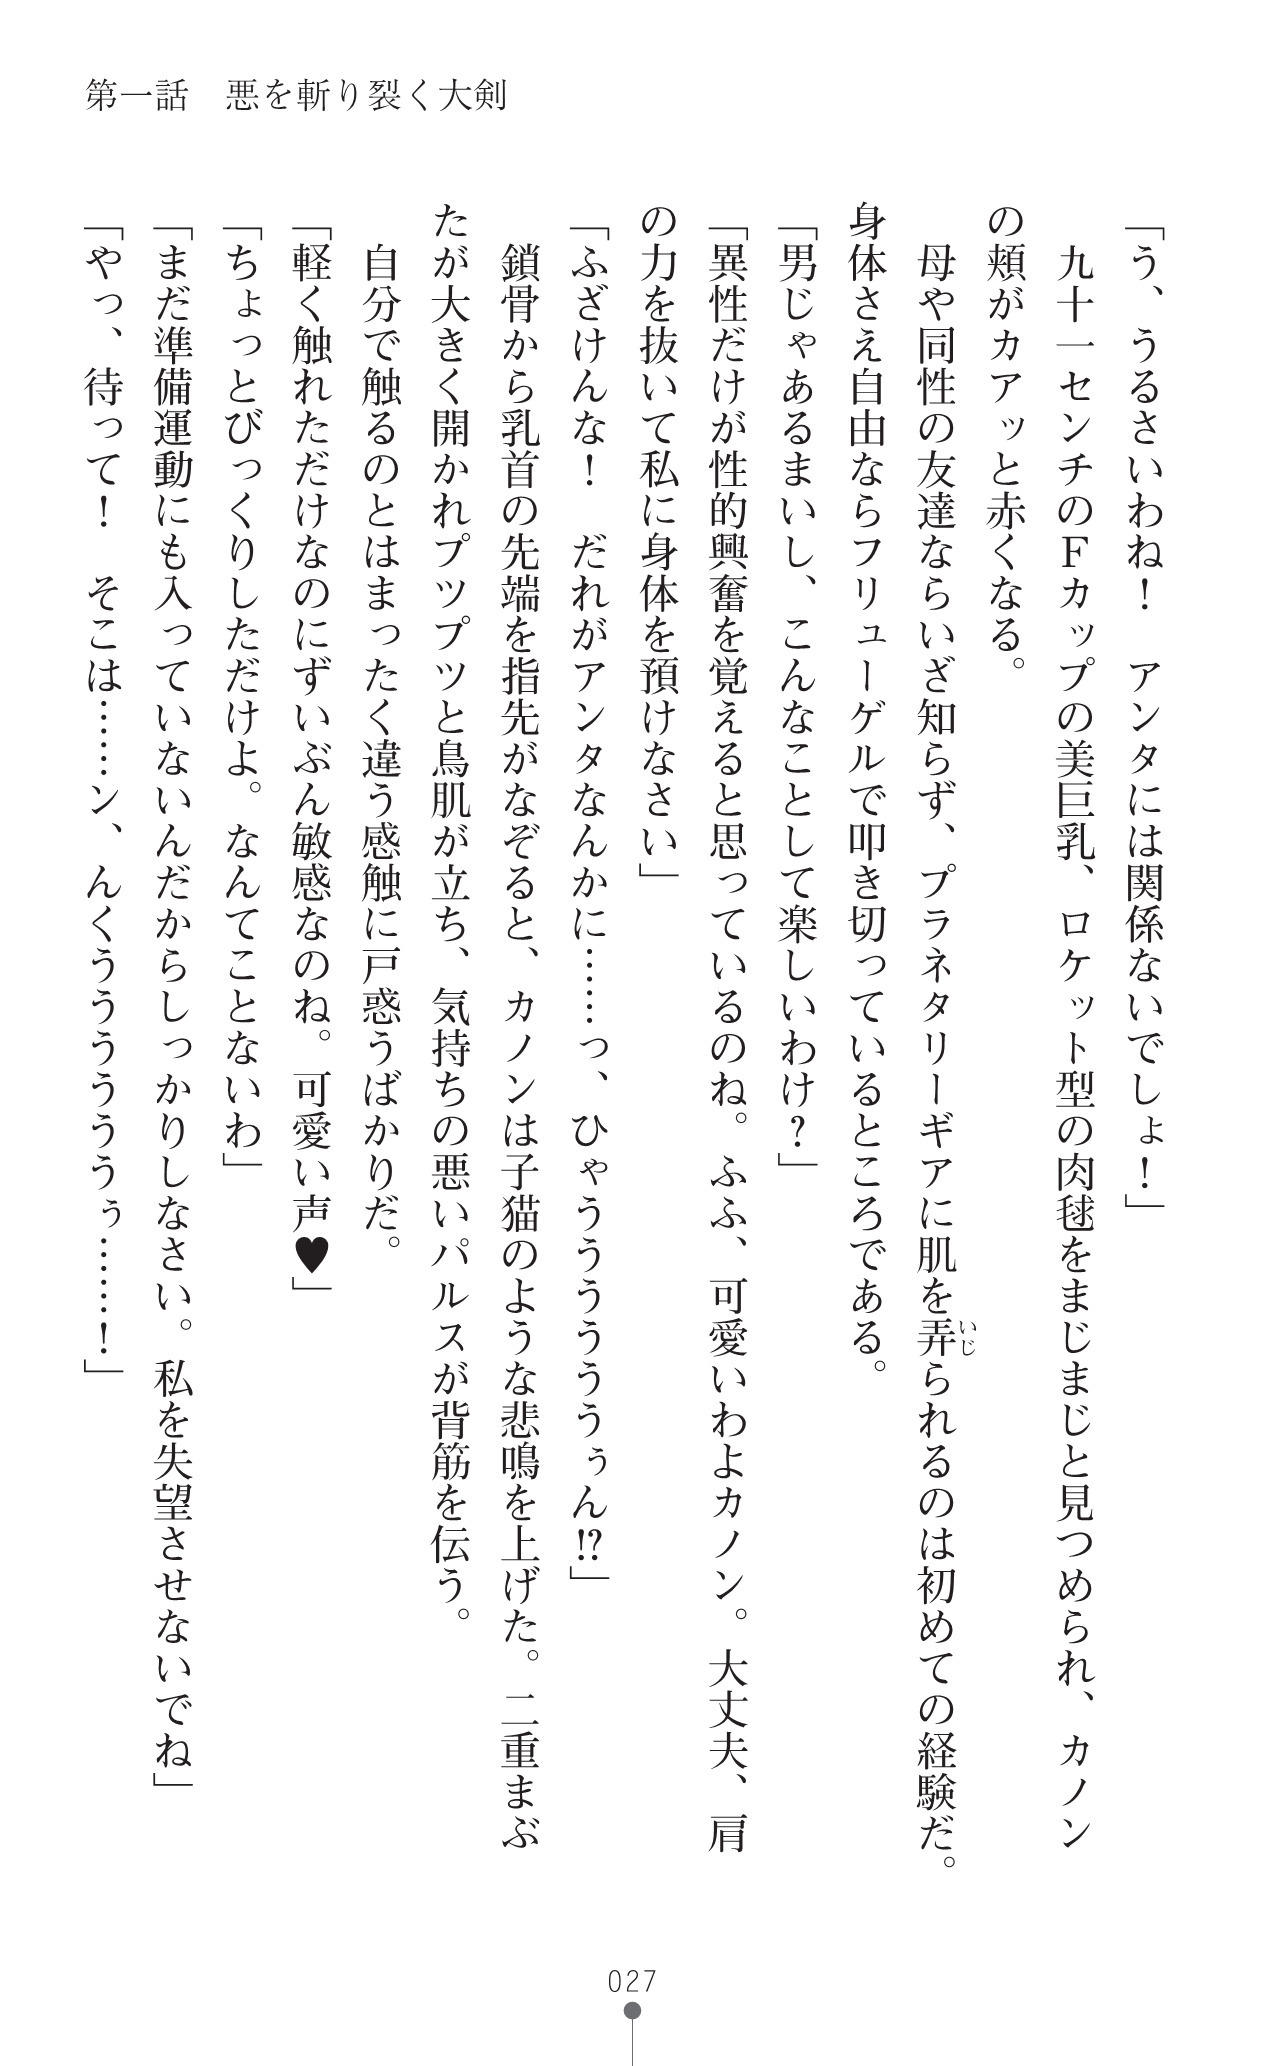 第一話　悪を斬り裂く大剣
「う、うるさいわね！　アンタには関係ないでしょ！」
　九十一センチのＦカップの美巨乳、ロケット型の肉毬をまじまじと見つめられ、カノン
の頬がカアッと赤くなる。
　母や同性の友達ならいざ知らず、プラネタリーギアに肌を弄られるのは初めての経験だ。
いじ
身体さえ自由ならフリューゲルで叩き切っているところである。
「男じゃあるまいし、こんなことして楽しいわけ？」
「異性だけが性的興奮を覚えると思っているのね。ふふ、可愛いわよカノン。大丈夫、肩
の力を抜いて私に身体を預けなさい」
「ふざけんな！　だれがアンタなんかに……っ、ひゃうううううぅん!?」
　鎖骨から乳首の先端を指先がなぞると、カノンは子猫のような悲鳴を上げた。二重まぶ
たが大きく開かれプツプツと鳥肌が立ち、気持ちの悪いパルスが背筋を伝う。
　自分で触るのとはまったく違う感触に戸惑うばかりだ。
「軽く触れただけなのにずいぶん敏感なのね。可愛い声♥」
「ちょっとびっくりしただけよ。なんてことないわ」
「まだ準備運動にも入っていないんだからしっかりしなさい。私を失望させないでね」
「やっ、待って！　そこは……ン、んくううううううぅ……！」
027